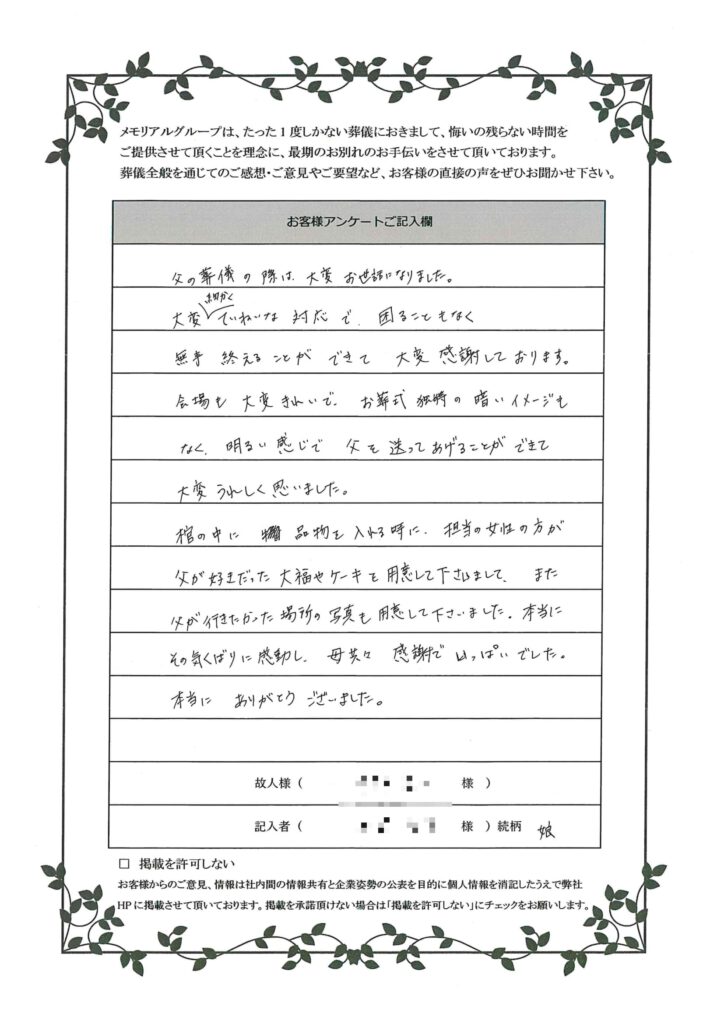 メモリアルグループは、たった1度しかない葬儀におきまして、悔いの残らない時間を
ご提供させて頂くことを理念に、最期のお別れのお手伝いをさせて頂いております。
葬儀全般を通じてのご感想・ご意見やご要望など、お客様の直接の声をぜひお聞かせ下さい。
お客様アンケートご記入欄
父の葬儀の際は、大変お世話になりました。
細かく
大変ていねいな対応で、困ることもなく
無事終えることができて大変感謝しております。
会場も大変きれいで、お葬式独特の暗いイメージも
なく、明るい感じで父を送ってあげることができて
大変うれしく思いました。
棺の中に品物を入れる時に、担当の女性の方が
父が好きだった大福やケーキを用意して下さいまして、また
父が行きたかった場所の写真も用意して下さいました。本当に
その気くばりに感動し、母共々感謝でいっぱいでした。
本当にありがとうございました。
故人様（ 様 ）
記入者（ 様 ）続柄 娘
□ 掲載を許可しない
お客様からのご意見、情報は社内間の情報共有と企業姿勢の公表を目的に個人情報を消記したうえで弊社
HPに掲載させて頂いております。掲載を承諾頂けない場合は「掲載を許可しない」にチェックをお願いします。